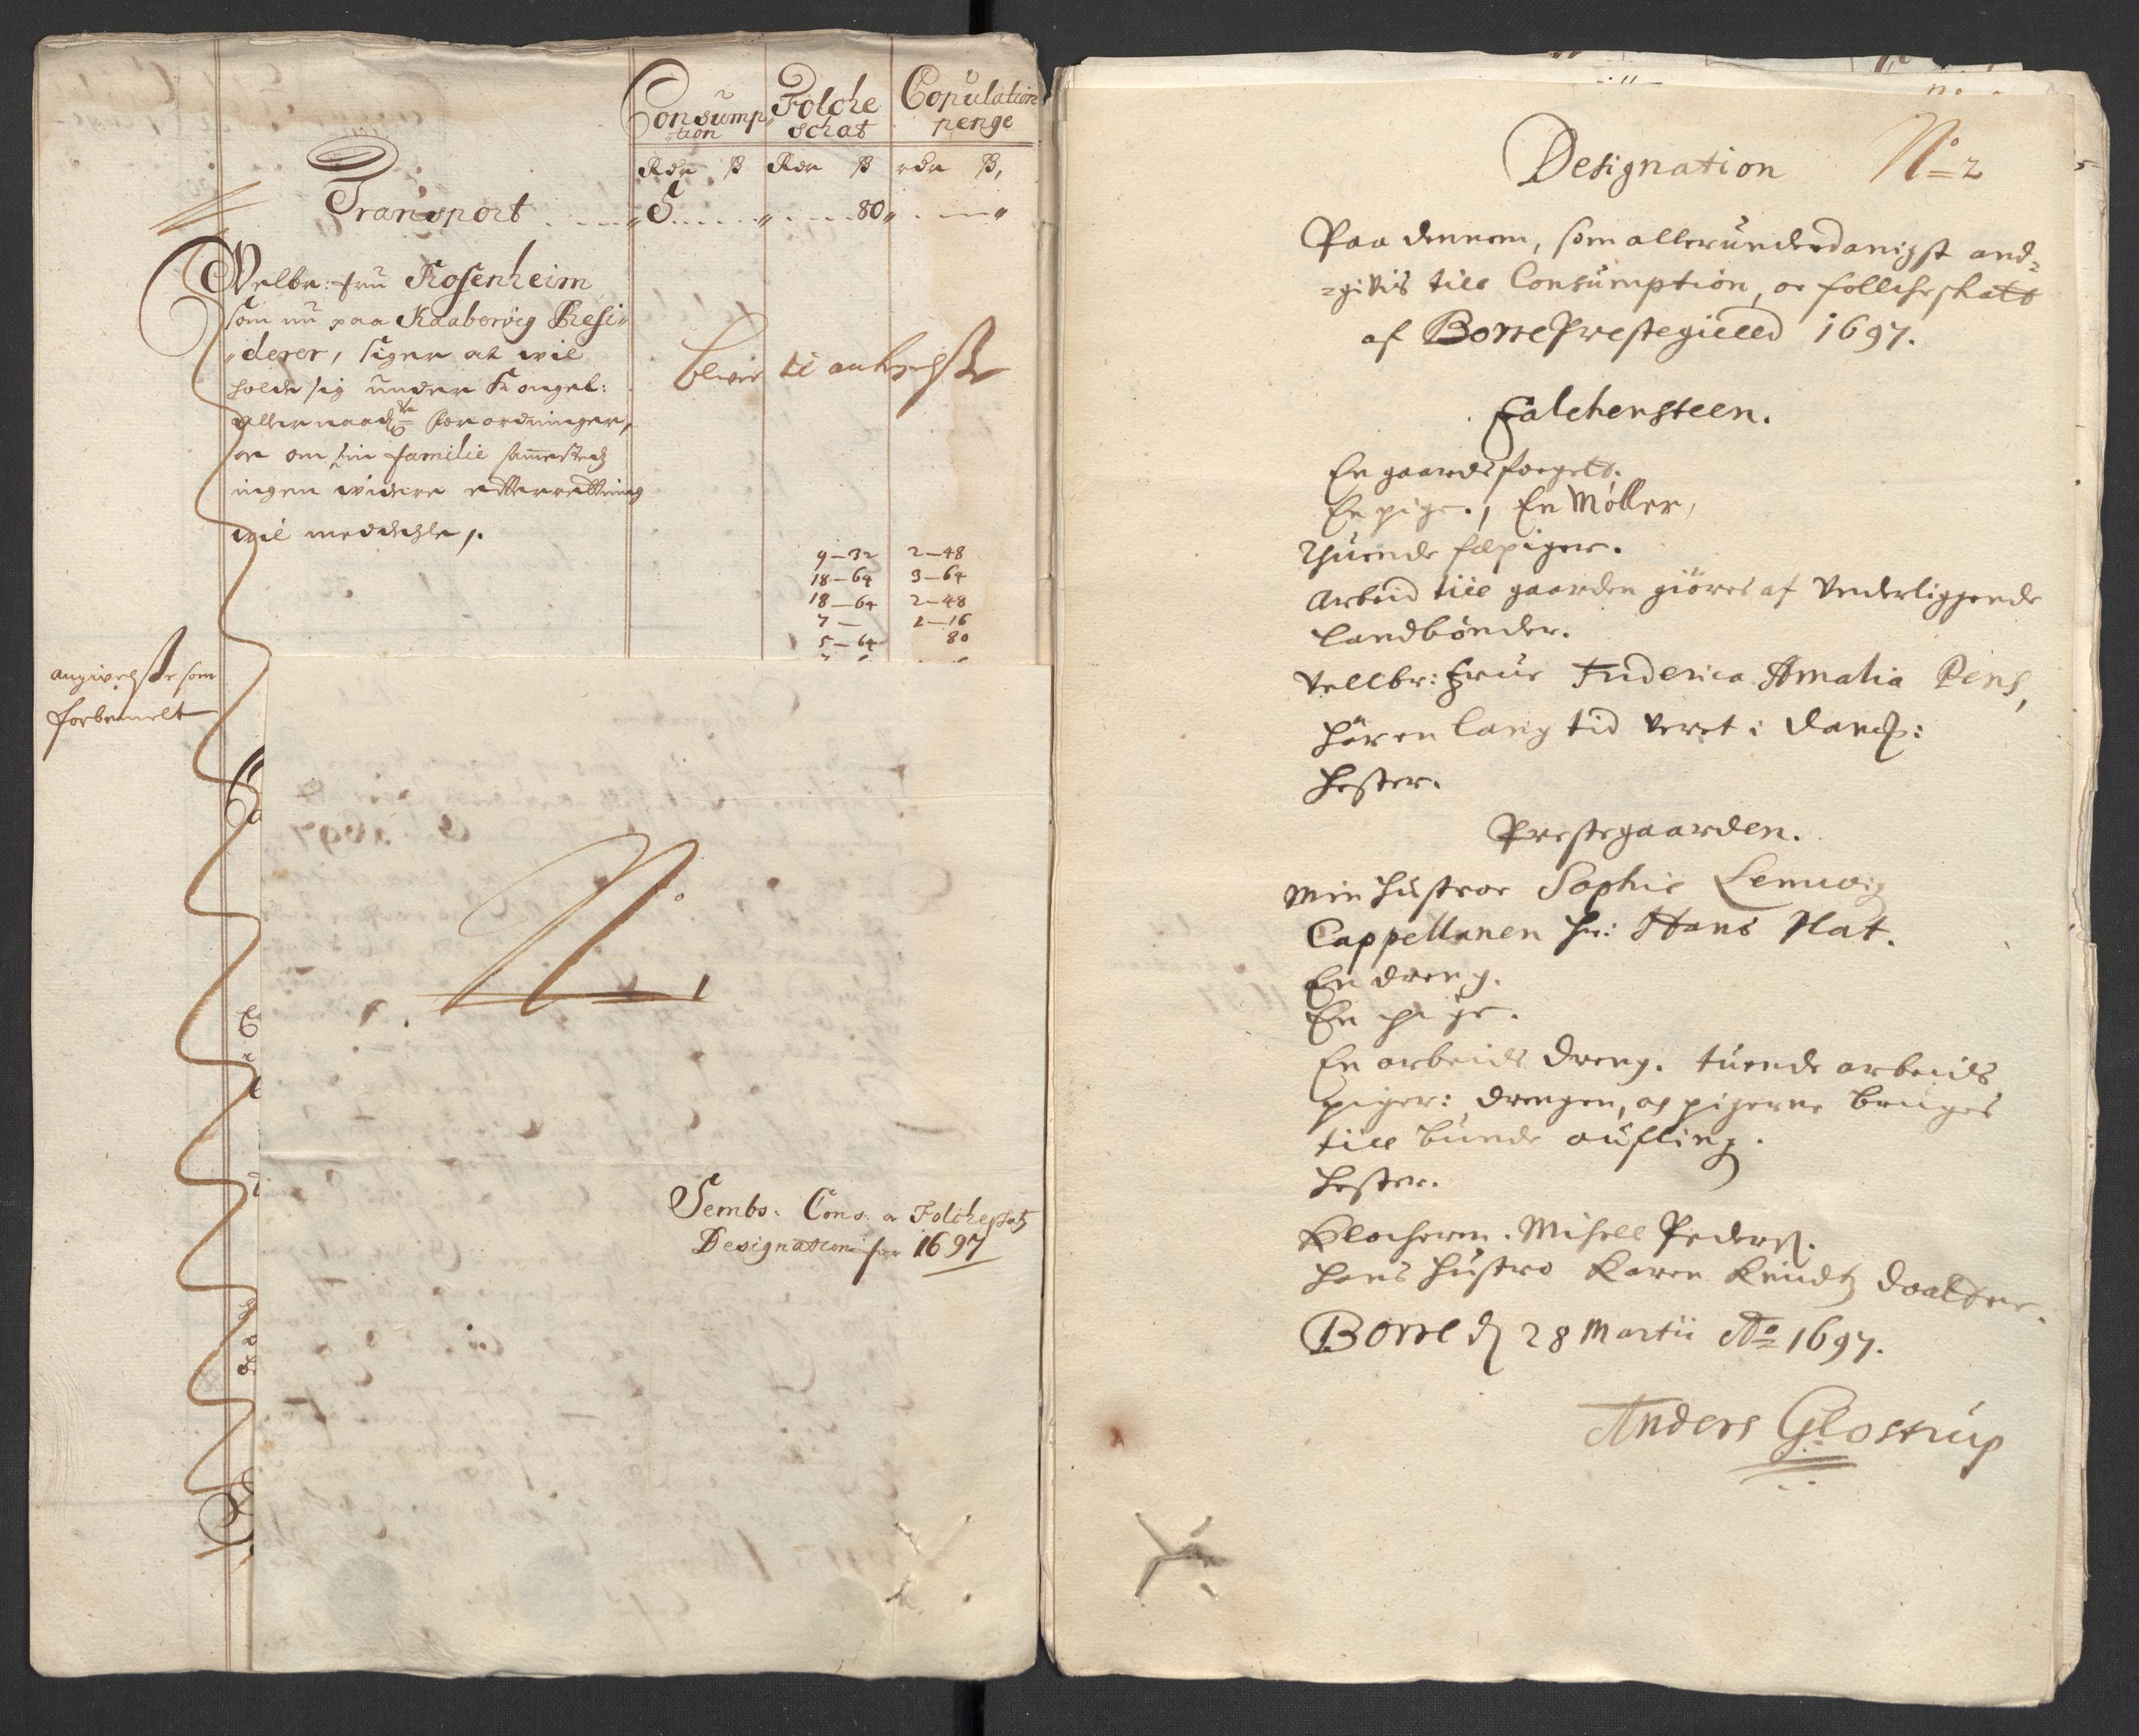 Consump¬
tion
Folche
schat
Copulation
penge
Rdr ß Rdr ß rdr ß,
Transport 5 80
Velbr: fru Rosenheim
som nu paa Kaaberöig Resi¬
derer, siger at wil
holde sig under Kongel:
allernaadste forordninger,
or om sin familie sammesteds
ingen widere efterretning
wil meddehle,.
blever til anhørelse
9-32 2-48
18-64 3-64
18-64 2-48
7- 1-16
5-64 80
angivelse som
forbemelt
No 1
Sembs: Cons: o Folcheschatz
Designation for 1697
Designation No 2
Paa dennem, som allerunderdanigst and¬
givis till Consumption, oc follcheskatt
af Borre Prestegield 1697.
Falchensteen.
En gaardsfoget.
En pige., En Møller,
Thuende fæpiger.
Arbeid till gaarden giöres af Underliggende
Landbönder.
Vellbr: Frue Friderica Amalia Pens,
haver en lang tid veret i Danß:
Hester.
Prestegaarden.
Min Hustroe Sophie Lemwig
Cappellanen Hr: Hans Nat.
En dreng.
En pige.
En arbeids dreng. tuende arbeids
piger: drengen, og pigerne bruges
till bunde aufling.
Hester.
Klocheren. Mihell Pederß.
Hans Hustro Karen Knudtz daatter.
Borre d 28 Martii Ao 1697.
Anders Glostrup